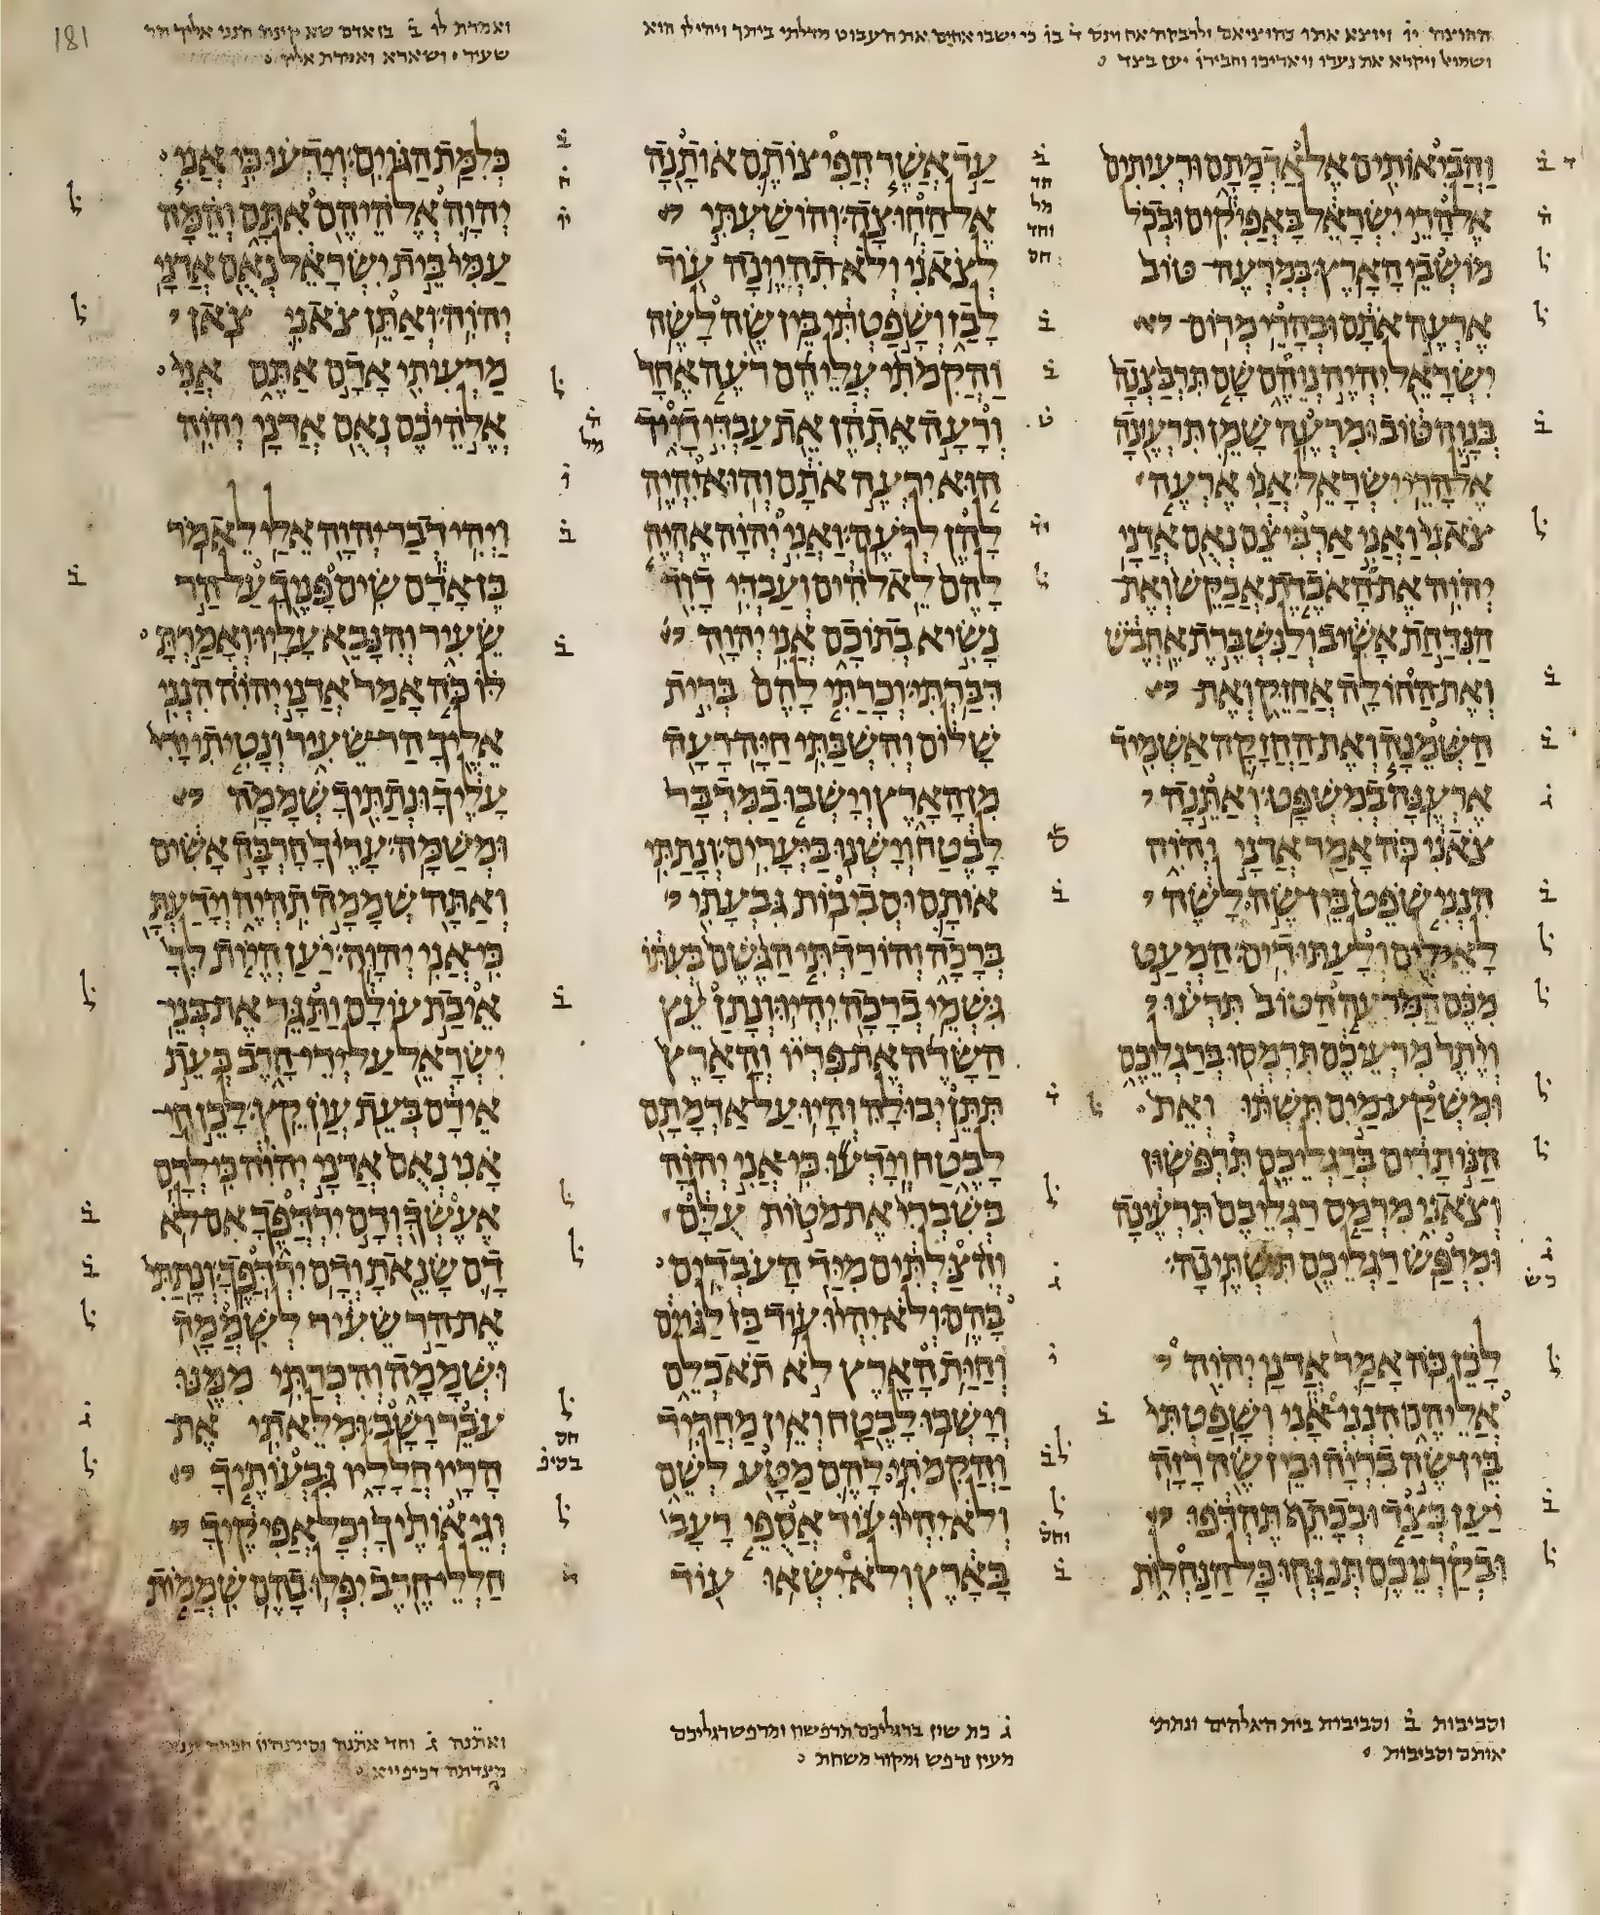 החוצה יו ויוצא אתו
ואמרת לו ב
והביאותים אל אדמתם ורעיתים
אל הרי ישראל באפיקים ובכל
מושבי הארץ במרעה טוב
ארעה אתם ובהרי מרום
ישראל יהיה נוהם שם תרבצנה
בנוה טוב ומרעה שמן תרעינה
אל הרי ישראל אני ארעה
צאני ואני ארביצם נאם אדני
יהוה את האבדת אבקש ואת
הנדחת אשיב ולנשברת אחבש
ואת החולה אחזק ואת
השמנה ואת החזקה אשמיד
ארענה במשפט ואתנה
צאני כה אמר אדני יהוה
הנני שפט בין שה לשה
לאילים ולעתודים המעט
מכם המרעה הטוב תרעו
ויתר מרעיכם תרמסו ברגליכם
ומשקע מים תשתו ואת
הנותרים ברגליכם תרפשון
וצאני מרמס רגליכם תרעינה
ומרפש רגליכם תשתינה
לכן כה אמר אדני יהוה
אליהם הנני אני ושפטתי
בין שה בריה ובין שה רזה
יען בצד ובכתף תהדפו
ובקרניכם תנגחו כל הנחלות
עד אשר הפיצותם אותנה
אל החוצה והושעתי
לצאני ולא תהיינה עוד
לבז ושפטתי בין שה לשה
והקמתי עליהם רעה אחד
ורעה אתהן את עבדי דויד
הוא ירעה אתם והוא יהיה
להן לרעה ואני יהוה אהיה
להם לאלהים ועבדי דוד
נשיא בתוכם אני יהוה
דברתי וכרתי להם ברית
שלום והשבתי חיה רעה
מן הארץ וישבו במדבר
לבטח וישנו ביערים ונתתי
אותם וסביבות גבעתי
ברכה והורדתי הגשם בעתו
גשמי ברכה יהיו ונתן עץ
השדה את פריו והארץ
תתן יבולה והיו על אדמתם
לבטח וידעו כי אני יהוה
בשברי את מטות עלם
והצלתים מיד העבדים
בהם ולא יהיו עוד בז לגוים
וחית הארץ לא תאכלם
וישבו לבטח ואין מחריד
והקמתי להם מטע לשם
ולא יהיו עוד אספי רעב
בארץ ולא ישאו עוד
כלמת הגוים וידעו כי אני
יהוה אלהיהם אתם והמה
עמי בית ישראל נאם אדני
יהוה ואתן צאני צאן
מרעיתי אדם אתם אני
אלהיכם נאם אדני יהוה
ויהי דבר יהוה אלי לאמר
בן אדם שים פניך על הר
שעיר והנבא עליו ואמרת
לו כה אמר אדני יהוה הנני
אליך הר שעיר ונטיתי ידי
עליך ונתתיך שממה
ומשמה עריך חרבה אשים
ואתה שממה תהיה וידעת
כי אני יהוה יען היות לך
איבת עולם ותגר את בני
ישראל על ידי חרב בעת
אידם בעת עון קץ לכן חי
אני נאם אדני יהוה כי לדם
אעשך ודם ירדפך אם לא
דם שנאת ודם ירדפך ונתתי
את הר שעיר לשממה
ושממה והכרתי ממנו
עבר ושב ומלאתי את
הריו חלליו גבעותיך
וגיאותיך וכל אפיקיך
חללי חרב יפלו בהם שממות
וסביבות ב וסביבות בית האלהים ונתתי
אותם וסביבות
ג כת שין ברגליכם תרפשון ומרפש רגליכם
מעין נרפש ומקור משחת